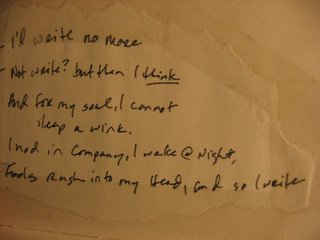 - I'll write no more
- Not write? but then I think
And for my soul, I cannot
sleep a wink.
I nod in Company, I wake @ Night,
Fools rush into my Head, and so I write